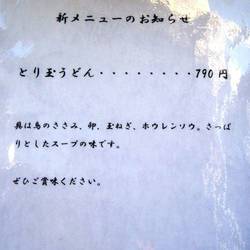 新メニューのお知らせ
とり玉うどん・・・・・・・・790円
具は鳥のささみ、卵、玉ねぎ、ホウレンソウ。さっぱ
りとしたスープの味です。
ぜひご賞味ください。